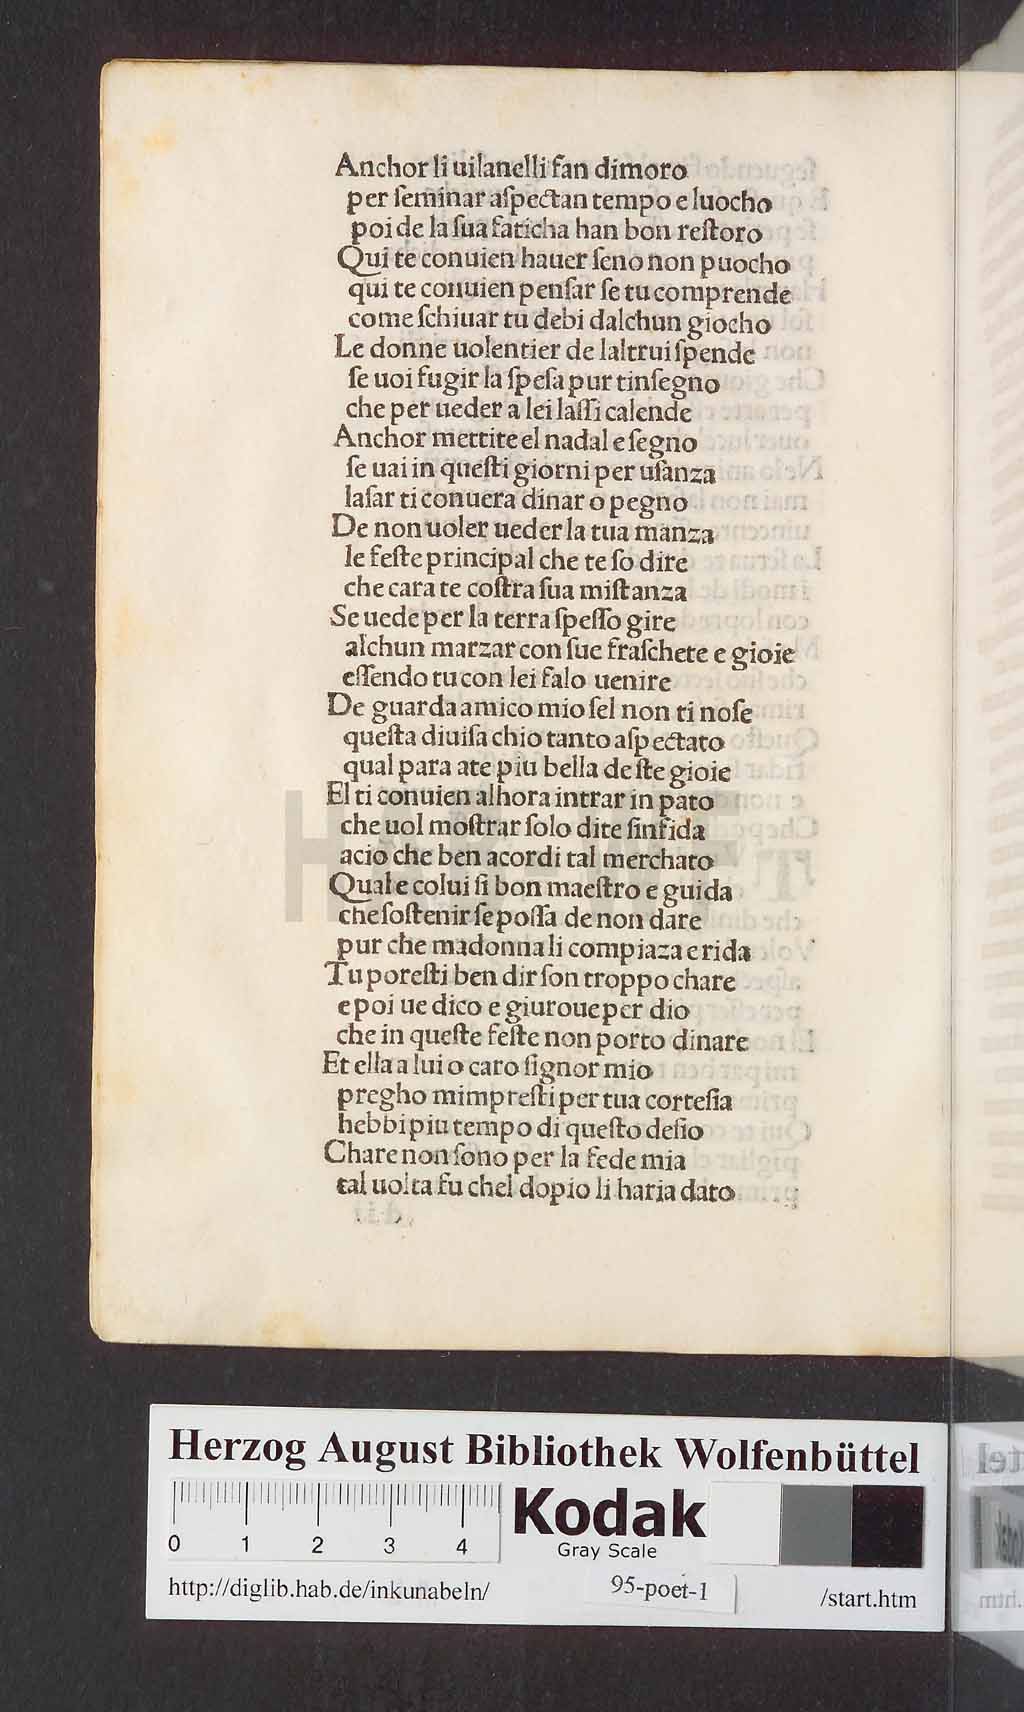 Anchor li uilanelli fan dimoro
per ſeminar aſpectan tempo e luocho
poi de la ſua faticha han bon reſtoro
Qui te conuien hauer ſeno non puocho
qui te conuien penſar ſe tu comprende
come ſchiuar tu debi dalchun giocho
Le donne uolentier de laltrui ſpende
ſe uoi fugir la ſpeſa pur tinſegno
che per ueder a lei laſſi calende
Anchor mettite el nadal e ſegno
ſe uai in queſti giorni per uſanza
laſar ti conuera dinar o pegno
De non uoler ueder la tua manza
le feſte principal che te ſo dire
che cara te coſtra ſua miſtanza
Se uede per la terra ſpeſſo gire
alchun marzar con ſue fraſchete e gioie
eſſendo tu con lei falo uenire
De guarda amico mio ſel non ti noſe
queſta diuiſa chio tanto aſpectato
qual para ate piu bella de ſte gioie
El ti conuien alhora intrar in pato
che uol moſtrar ſolo dite ſinfida
acio che ben acordi tal merchato
Qual e colui ſi bon maeſtro e guida
che ſoſtenir ſe poſſa de non dare
pur che madonna li compiaza e rida
Tu poreſti ben dir ſon troppo chare
e poi ue dico e giuroue per dio
che in queſte feſte non porto dinare
Et ella a lui o caro ſignor mio
pregho mimpreſti per tua corteſia
hebbi piu tempo di queſto deſio
Chare non ſono per la fede mia
tal uolta fu chel dopio li haria dato
HAB - WF
Herzog August Bibliothek Wolfenbüttel
0 1 2 3 4
Kodak
Gray Scale
http://diglib.hab.de/inkunabeln/ 95-poet-1 /start.htm